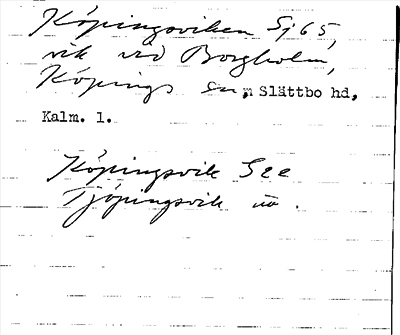 Köpingsviken Sj 65,
vik vid Borgholm,
Köpings sn, Slättbo hd,
Kalm. l.
Köpingsvik See
Tjöpingsvik uu.